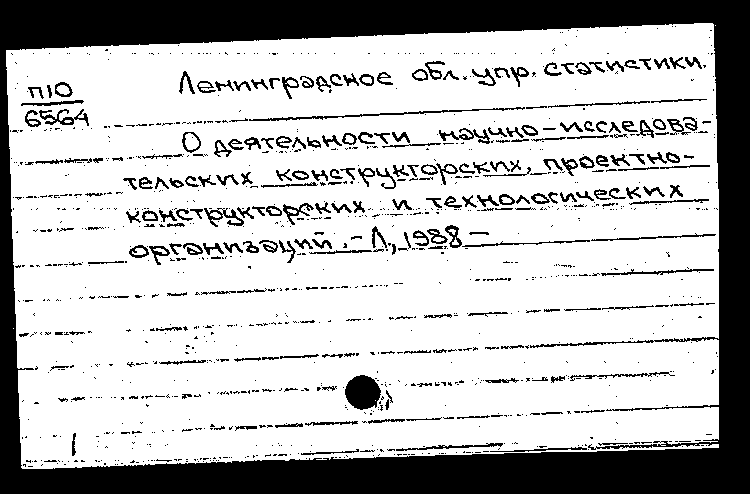 Ленинградское обл. упр. статистики.
П10
6564
О деятельности научно-исследова-
тельских конструкторских, проектно-
конструкторских и технологических
организаций. - Л, 1988 -